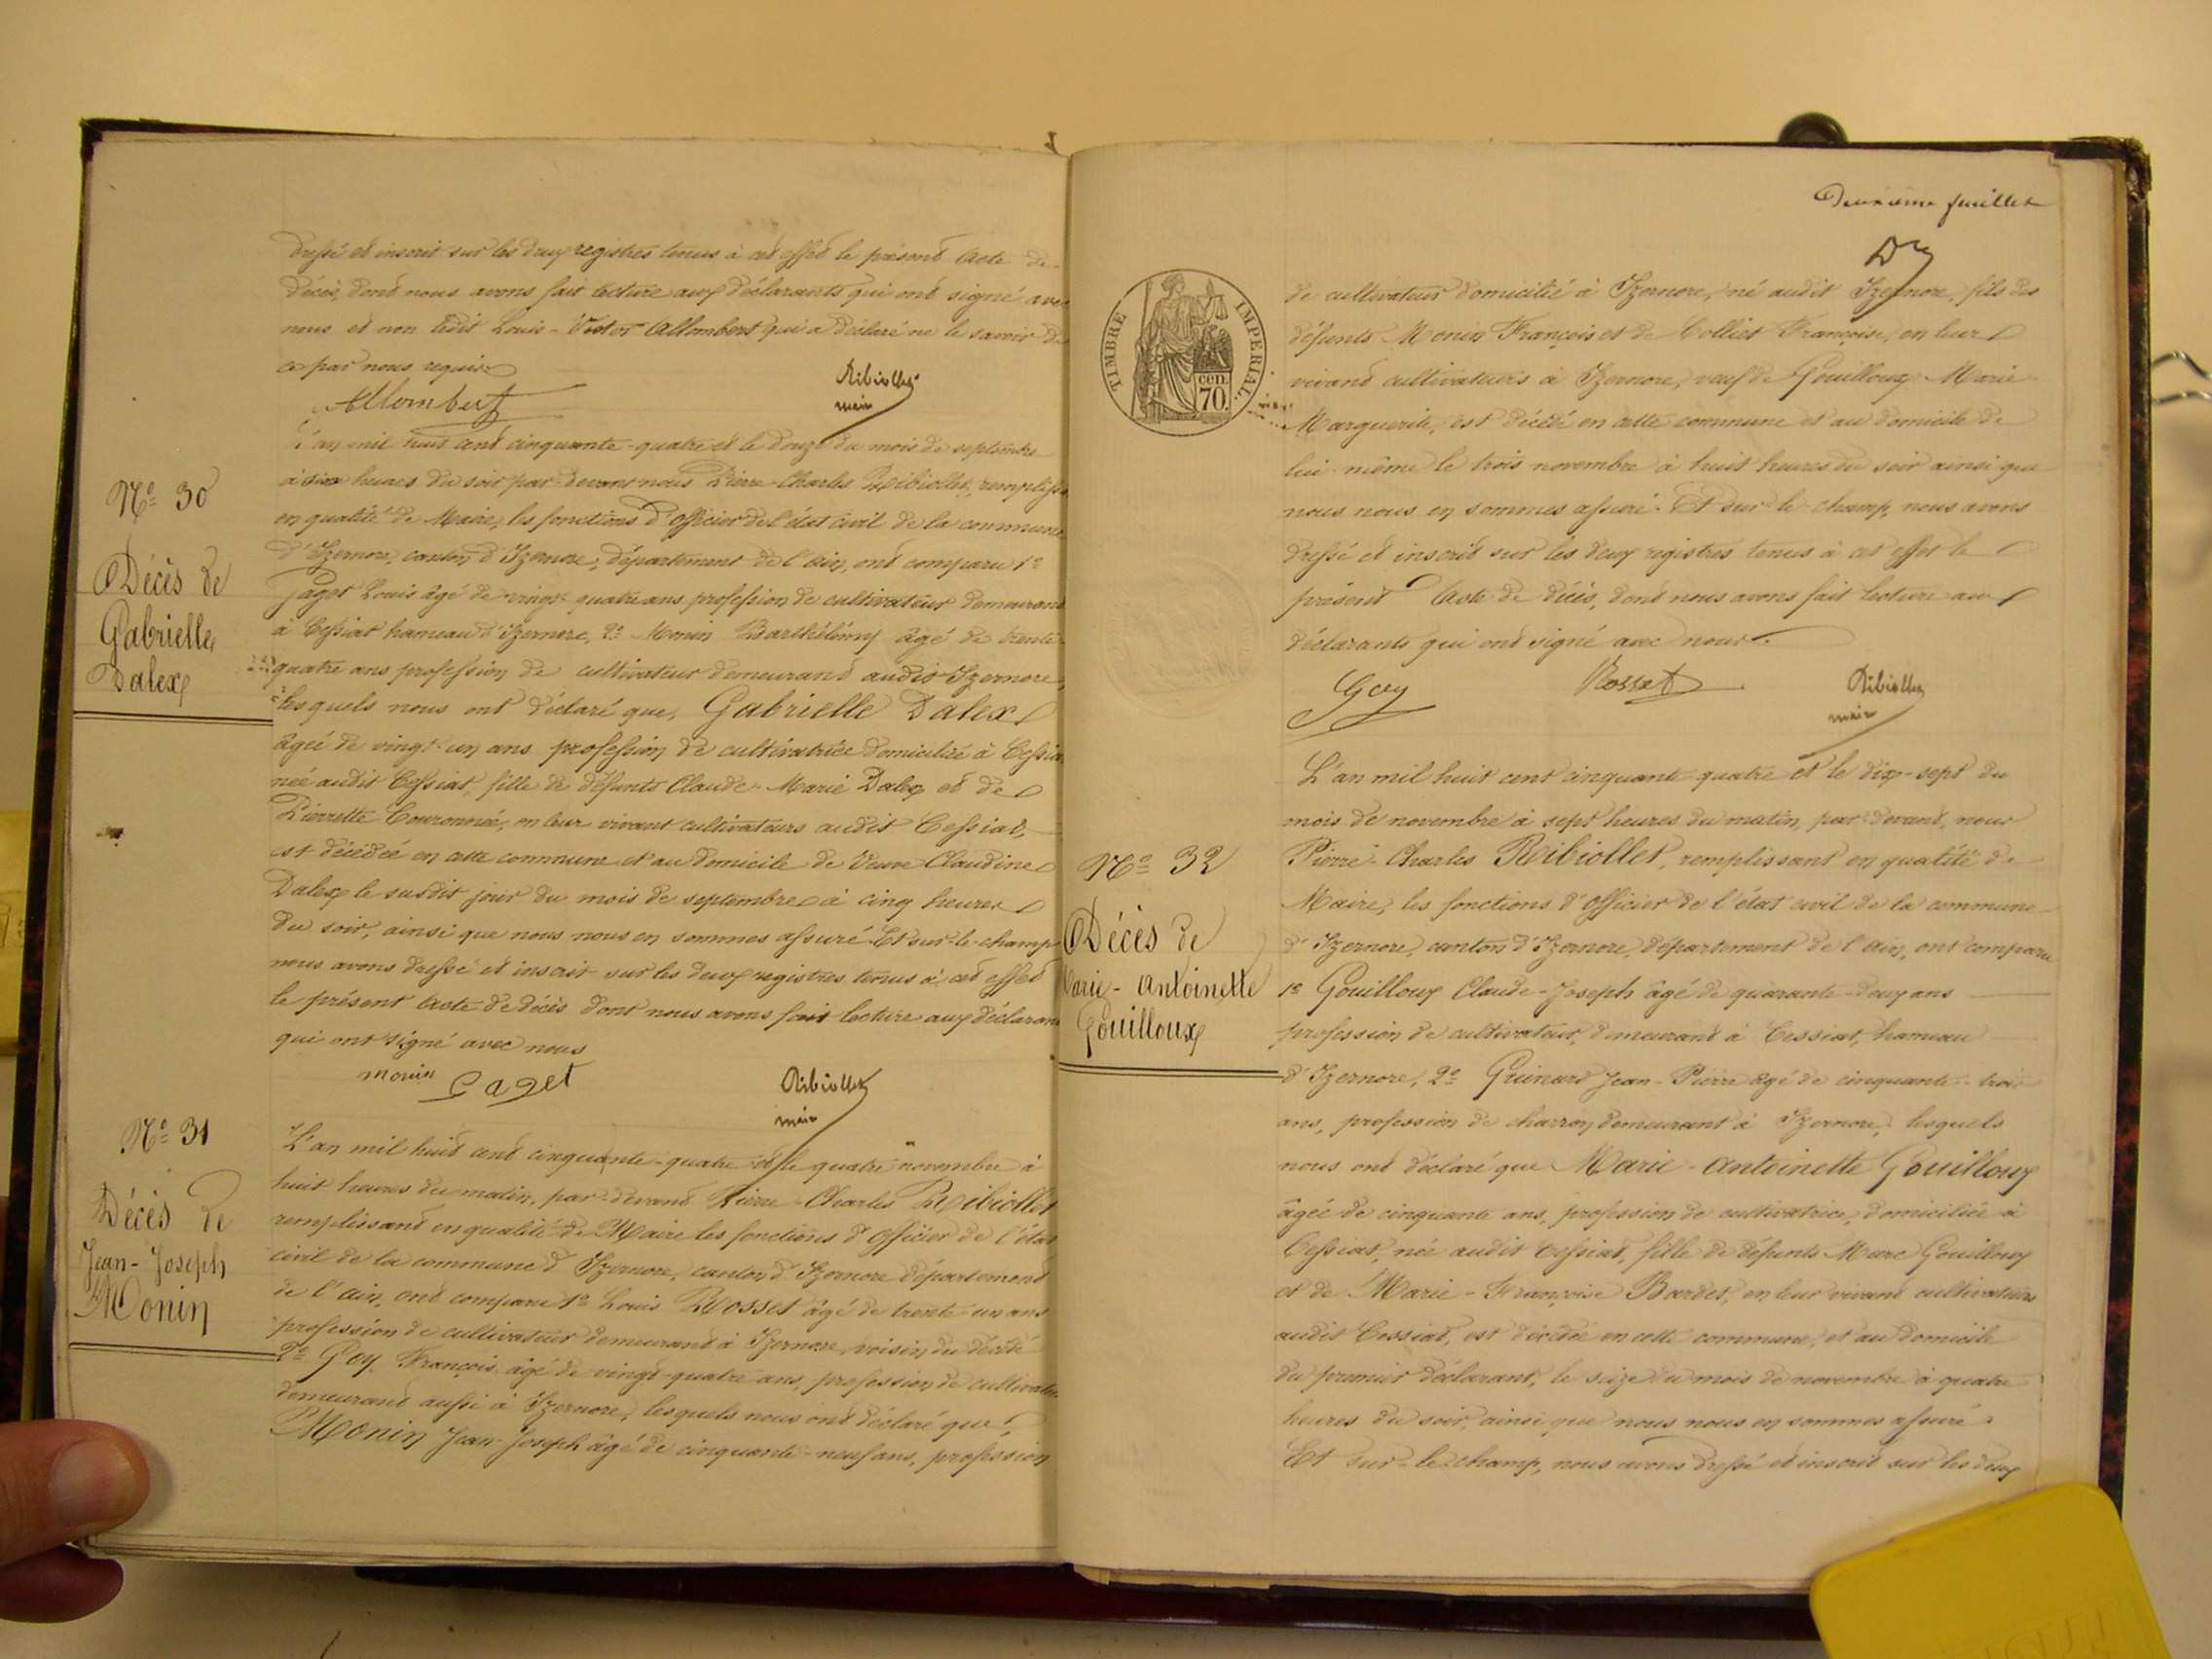 dressé et inscrit sur les deux registres tenus à cet effet le présent acte de
décès, dont nous avons fait lecture aux déclarants qui ont signé avec
nous et non ledit Louis-Victor Allombert qui a déclaré ne le savoir de
ce par nous requis
Allombert
Ribiollet
maire
N° 30
Décès de
Gabrielle
Dalex
L'an mil huit cent cinquante-quatre et le douze du mois de septembre
à six heures du soir par-devant nous Pierre-Charles Ribiollet, remplissant
en qualité de Maire, les fonctions d'officier de l'état civil de la commune
d'Izernore, canton d'Izernore, département de l'ain, ont comparu 1°
Paget Louis âgé de vingt-quatre ans profession de cultivateur demeurant
à Cessiat hameau d'Izernore, 2° Monin Barthélémy âgé de trente-
quatre ans profession de cultivateur demeurant audit Izernore,
lesquels nous ont déclaré que, Gabrielle Dalex
âgée de vingt-un ans profession de cultivatrice domiciliée à Cessiat
née audit Cessiat, fille de défunts Claude-Marie Dalex et de
Pierrette Couronnée, en leur vivant cultivateurs audit Cessiat,
est décédée en cette commune et au domicile de Veuve Claudine
Dalex le susdit jour du mois de septembre à cinq heures
du soir, ainsi que nous nous en sommes assuré. Et sur-le-champ
nous avons dressé et inscrit sur les deux registres tenus à cet effet
le présent acte de décès dont nous avons fait lecture aux déclarants
qui ont signé avec nous
monin Paget
Ribiollet
maire
N° 31
Décès de
Jean-Joseph
Monin
L'an mil huit cent cinquante-quatre et le quatre novembre à
huit heures du matin, par-devant Pierre-Charles Ribiollet
remplissant en qualité de Maire les fonctions d'officier de l'état
civil de la commune d'Izernore, canton d'Izernore département
de l'ain, ont comparu 1° Louis Rosset âgé de trente-un ans
profession de cultivateur demeurant à Izernore, voisin du décédé
2° Goy François âgé de vingt-quatre ans, profession de cultivateur
demeurant aussi à Izernore, lesquels nous ont déclaré que
Monin Jean-Joseph âgé de cinquante-neuf ans, profession
Deuxième feuillet
TIMBRE IMPERIAL
cen.
70.
de cultivateur domicilié à Izernore, né audit Izernore, fils des
défunts Monin François et de Colliet Françoise, en leur
vivant cultivateurs à Izernore, veuf de Gouilloux Marie
Marguerite, est décédé en cette commune et au domicile de
lui-même le trois novembre à huit heures du soir ainsi que
nous nous en sommes assuré. Et sur-le-champ, nous avons
dressé et inscrit sur les deux registres tenus à cet effet le
présent acte de décès, dont nous avons fait lecture aux
déclarants qui ont signé avec nous.
Goy Rosset Ribiollet
maire
N° 32
Décès de
Marie-Antoinette
Gouilloux
L'an mil huit cent cinquante-quatre et le dix-sept du
mois de novembre à sept heures du matin, par-devant, nous
Pierre-Charles Ribiollet, remplissant en qualité de
Maire, les fonctions d'officier de l'état civil de la commune
d'Izernore, canton d'Izernore, département de l'ain, ont comparu
1° Gouilloux Claude-Joseph âgé de quarante-deux ans
profession de cultivateur, demeurant à Cessiat, hameau
d'Izernore, 2° Guinard Jean-Pierre âgé de cinquante-trois
ans, profession de charron demeurant à Izernore, lesquels
nous ont déclaré que Marie-Antoinette Gouilloux
âgée de cinquante ans, profession de cultivatrice, domiciliée à
Cessiat, née audit Cessiat, fille de défunts Marc Gouilloux
et de Marie-Françoise Bardet, en leur vivant cultivateurs
audit Cessiat, est décédée en cette commune, et au domicile
du premier déclarant, le seize du mois de novembre à quatre
heures du soir, ainsi que nous nous en sommes assuré.
Et sur-le-champ, nous avons dressé et inscrit sur les deux